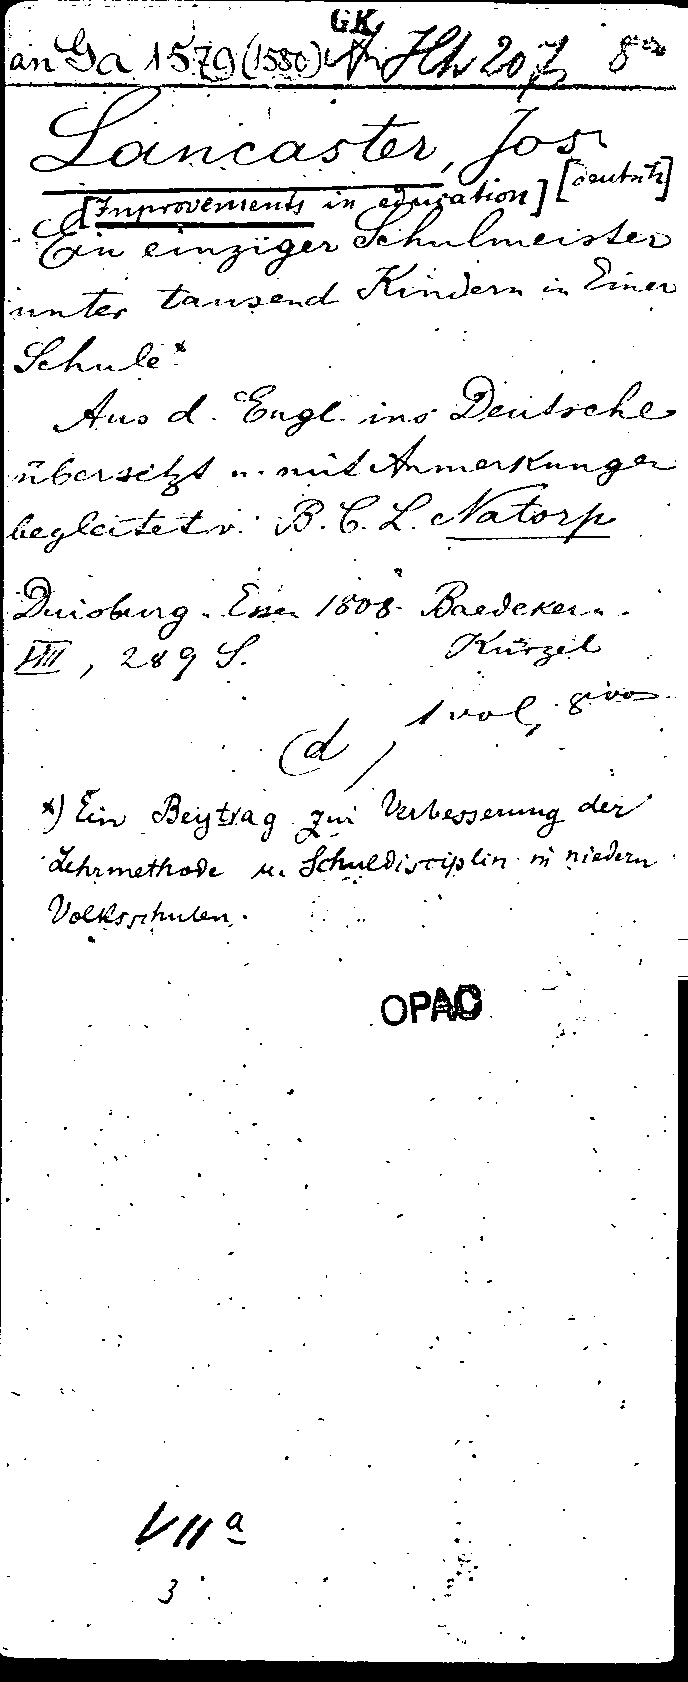 GK
an Ga 1579 (1580) Hh 207 8vo
Lancaster, Jos.
[Improvements in education] [deutsch]
Ein einziger Schulmeister
unter tausend Kindern in Einer
Schule*
Aus d. Engl. ins Deutsche
übersetzt u. mit Anmerkungen
begleitet v. B. C. L. Natorp
Duisburg u. Essen 1808. Baedeker u.
Kürzel
VIII, 289 S.
1 vol, 8vo
(d)
*) Ein Beytrag zur Verbesserung der
Lehrmethode u. Schuldisciplin in niedern
Volksschulen.
OPAC
VII a
3